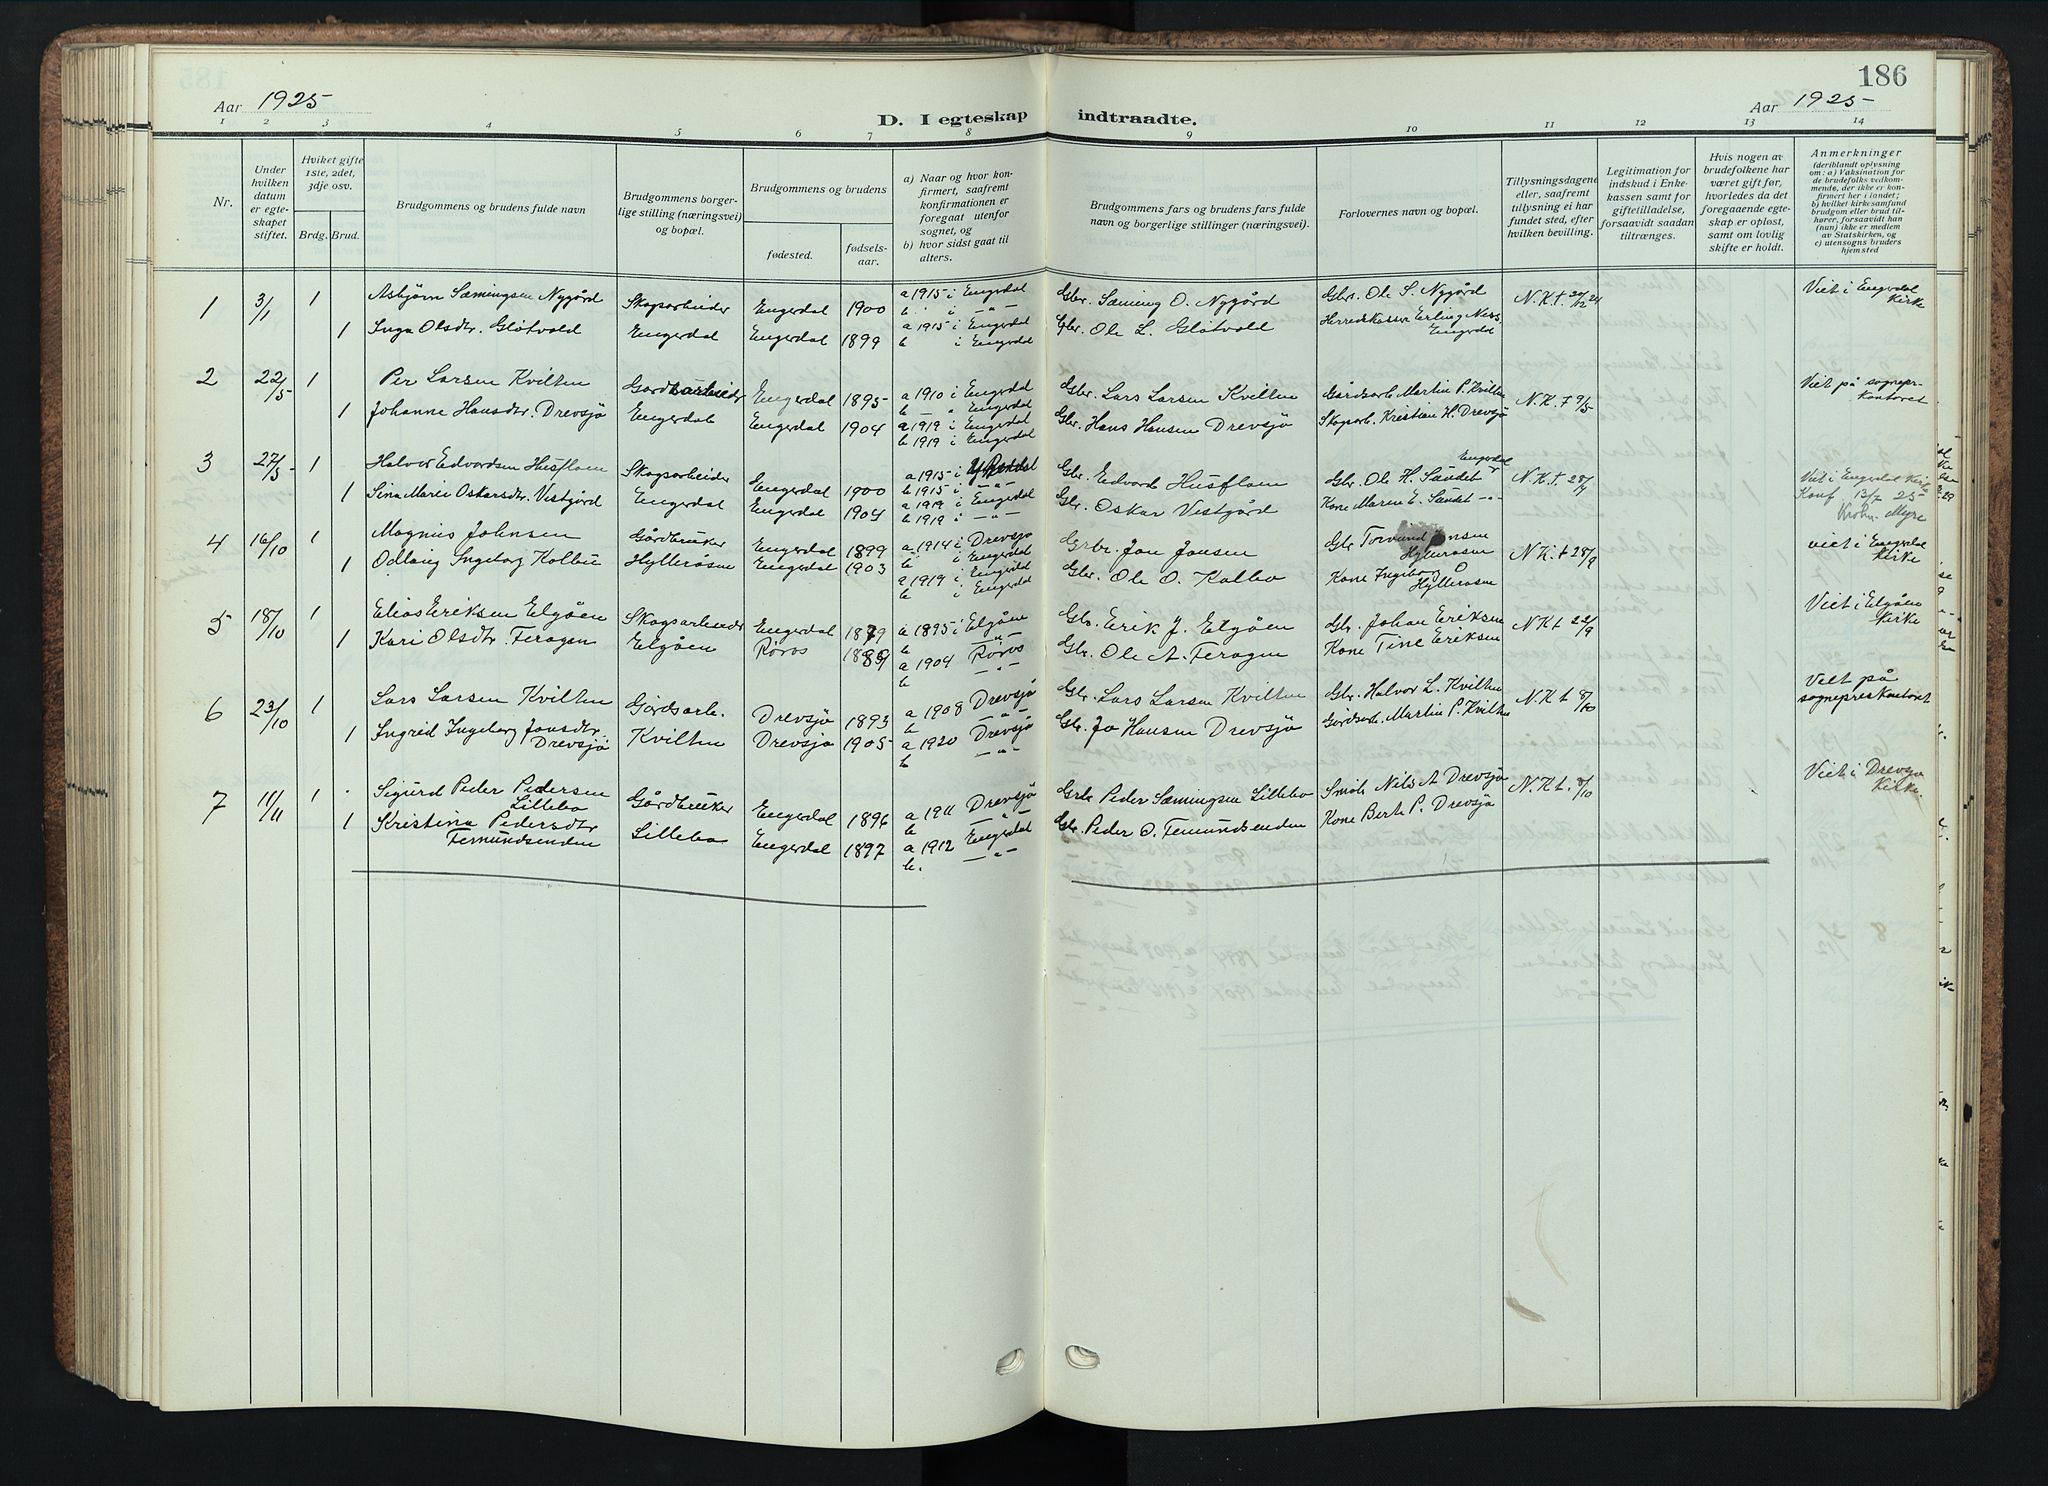 186
Aar 1925
Aar 1925
D. I egteskap indtraadte.
1 2 3 4 5 6 7 8 9 10 11 12 13 14
Nr.
Under hvilken datum er egteskapet stiftet.
Hviket gifte 1ste, 2det, 3dje osv.
Brdg. Brud.
Brudgommens og brudens fulde navn
Brudgommens borgerlige stilling (næringsvei) og bopæl.
Brudgommens og brudens
fødested.
fødselsaar.
a) Naar og hvor konfirmert, saafremt konfirmationen er foregaat utenfor sognet, og
b) hvor sidst gaat til alters.
Brudgommens fars og brudens fars fulde navn og borgerlige stillinger (næringsvei).
Forlovernes navn og bopæl.
Tillysningsdagene eller, saafremt tillysning ei har fundet sted, efter hvilken bevilling.
Legitimation for indskud i Enkekassen samt for giftetilladelse, forsaavidt saadan tiltrænges.
Hvis nogen av brudefolkene har været gift før, hvorledes da det foregaaende egteskap er opløst, samt om lovlig skifte er holdt.
Anmerkninger
(deriblandt oplysning om: a) Vaksination for de brudefolks vedkommende, der ikke er konfirmert her i landet; b) hvilket kirkesamfund brudgom eller brud tilhører, forsaavidt han (hun) ikke er medlem av Statskirken, og c) utensogns bruders hjemsted
1 3/1 1 Asbjørn Sæmingsen Nygård Skogsarbeider Engerdal 1900 a 1915 i Engerdal b " i -"- Gbr. Sæming O. Nygård Gbr. Ole S. Nygård N.K.t. 20/12 24 Viet i Engerdal Kirke
1 Inga Olsdtr. Gløtvold Engerdal Engerdal 1899 a 1915 i Engerdal b i Engerdal Gbr. Ole L. Gløtvold Herredskasser Erling Ness, Engerdal
2 22/5 1 Per Larsen Kvilten Gårdsarbeider Engerdal 1895 a 1910 i Engerdal b - " Engerdal Gbr. Lars Larsen Kvilten Gårdsarb. Martin P. Kvilten N.K.t 9/5 Viet på sognepr-kontoret
1 Johanne Hansdtr. Drevsjø Engerdal Engerdal 1904 a 1919 i Engerdal b 1919 i Engerdal Gbr. Hans Hansen Drevsjø Skogsarb. Kristian H. Drevsjø
3 27/5 1 Halvor Edvardsen Husfloen Skogsarbeider Engerdal 1900 a 1915 i b 1915 i -"- Gbr. Edvard Husfloen Gbr. Ole H. Sundet Engerdal N.K.t. 28/4 Viet i Engerdal Kirke
1 Sina Marie Oskarsdtr. Vestgård Engerdal Engerdal 1904 a 1919 i Engerdal b 1919 i -"- Gbr. Oskar Vestgård Kone Maren E. Sundet -"- Konf. 13/7 25
Krohn-Myre
4 16/10 1 Magnus Johnsen Gårdbruker Engerdal 1899 a 1914 i Drevsjø b i Engerdal Grbr. Jon Jonsen Gbr Jonsen Hyllerosen N.K.t 28/9 viet i Engerdal Kirke
1 Odlaug Ingeborg Kolbu Hyllerøsen Engerdal 1903 a 1919 i Engerdal b i Engerdal Gbr. Ole O. Kolbo Kone Ingeborg P Hyllerosen
5 18/10 1 Elias Eriksen Elgåen Skogsarbeider Engerdal 1879 a 1895 i Elgåen b -"- Gbr. Erik J. Elgåen Gbr. Johan Eriksen N.K.t 22/9 Viet i Elgåen Kirke
1 Kari Olsdtr. Feragen Elgåen Røros a 1904 Røros b -"- Gbr. Ole A. Feragen Kone Tine Eriksen
6 23/10 1 Lars Larsen Kvilten Gårdsarb. Drevsjø 1893 a 1908 Drevsjø b -"- Gbr. Lars Larsen Kvilten Gbr. Halvor L. Kvilten N.K.t 8/10 Viet på sogneprestkontoret
1 Ingrid Ingeborg Jonsdtr. Drevsjø Kvilten Drevsjø 1905 a 1920 Drevsjø b -"- Gbr. Jo Hansen Drevsjø Gårdsarb. Martin P. Kvilten
7 11/11 1 Sigurd Peder Pedersen Lillebo Gårdbruker Engerdal 1896 a 1911 Drevsjø b -"- Grbr Peder Sæmingsen Lillebo Småbr. Nils A Drevsjø N.K.t. 8/10 Viet i Drevsjø Kirke.
1 Kristina Pedersdtr Femundsenden Lillebo Engerdal 1897 a 1912 Engerdal b. -"- Gbr. Peder O. Femundsenden Kone Berte P. Drevsjø